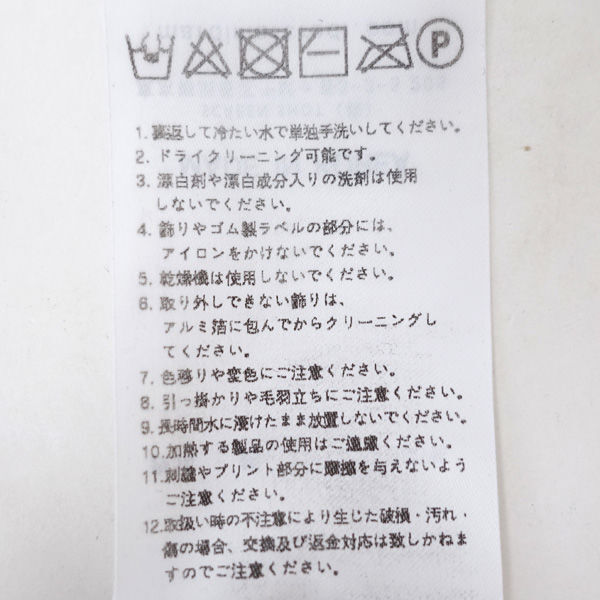 P
1. 裏返して冷たい水で単独手洗いしてください。
2. ドライクリーニング可能です。
3. 漂白剤や漂白成分入りの洗剤は使用
しないでください。
4. 飾りやゴム製ラベルの部分には、
アイロンをかけないでください。
5. 乾燥機は使用しないでください。
6. 取り外しできない飾りは、
アルミ箔に包んでからクリーニングし
てください。
7. 色移りや変色にご注意ください。
8. 引っ掛かりや毛羽立ちにご注意ください。
9. 長時間水に浸けたまま放置しないでください。
10. 加熱する製品の使用はご遠慮ください。
11. 刺繍やプリント部分に摩擦を与えないよう
ご注意ください。
12. 取扱い時の不注意により生じた破損・汚れ・
傷の場合、交換及び返金対応は致しかねま
すのでご注意ください。